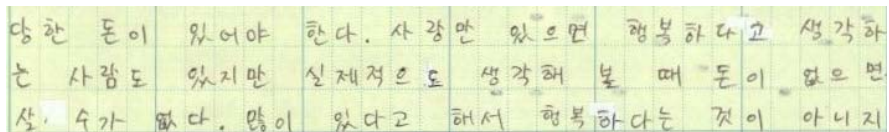 당한 돈이 있어야 한다. 사랑만 있으면 행복하다고 생각하
는 사람도 있지만 실제적으로 생각해 볼 때 돈이 없으면
살 수가 없다. 많이 있다고 해서 행복하다는 것이 아니지